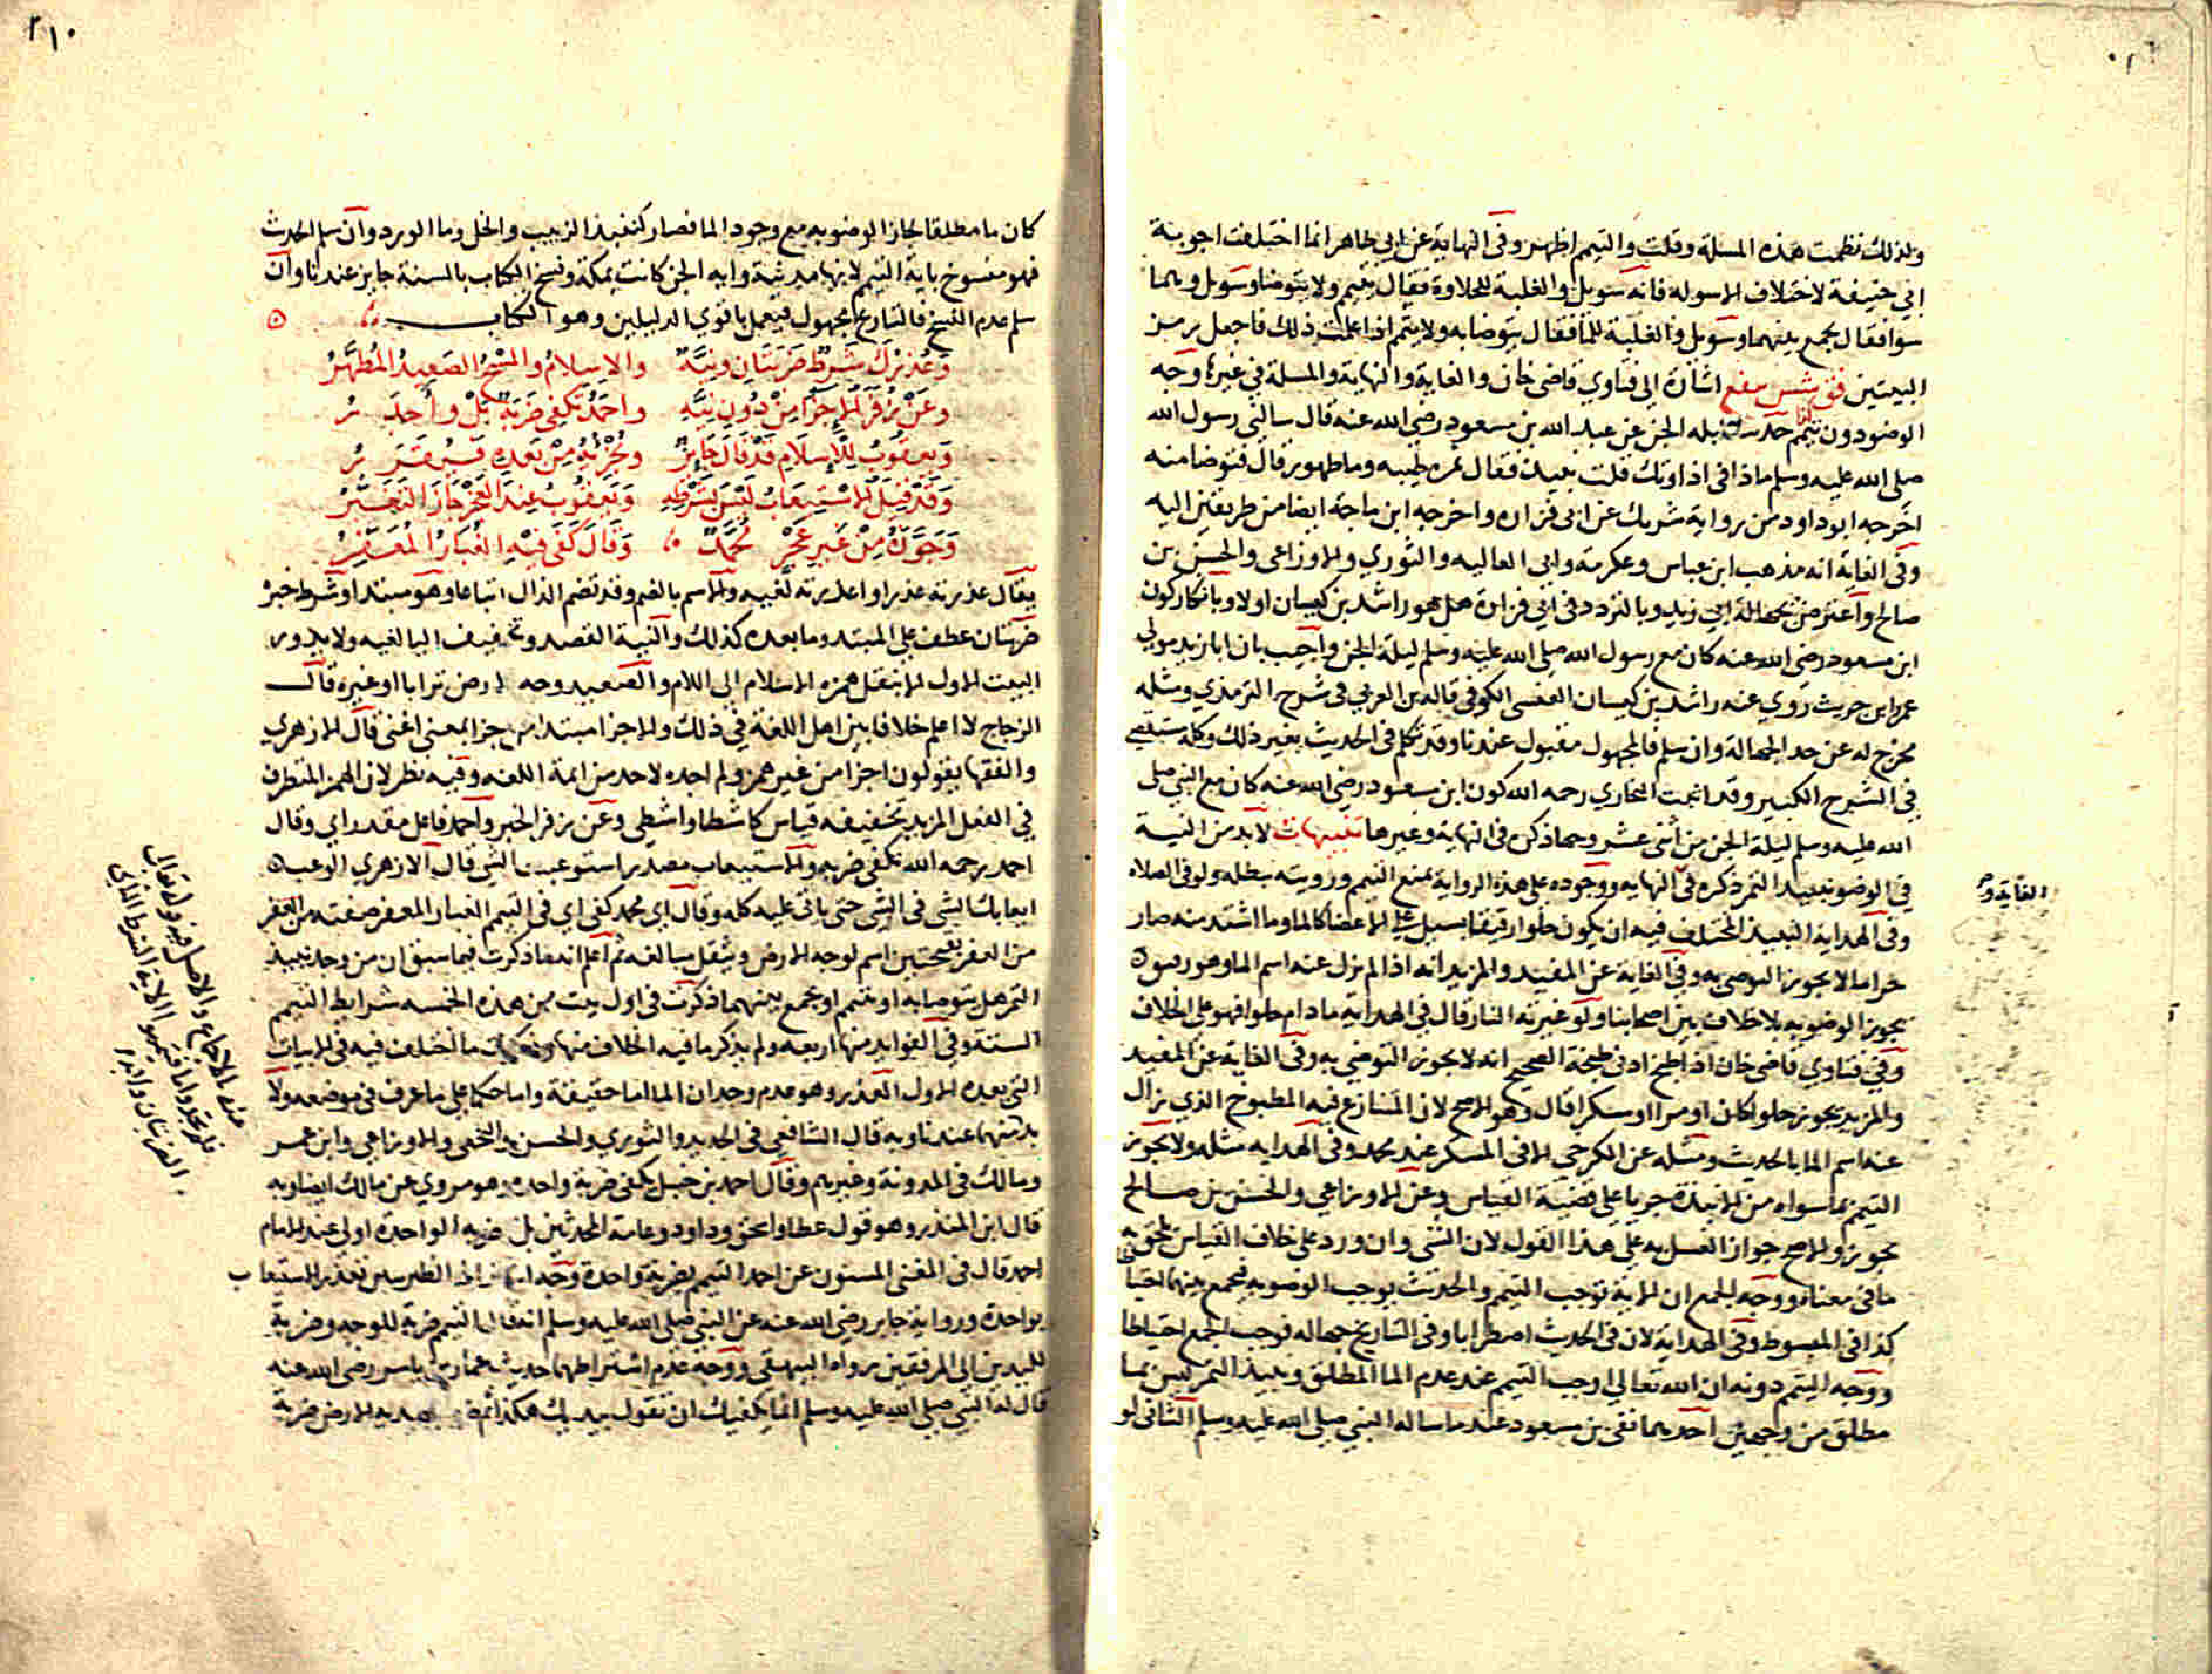 ولذلك نظمت هذه المسلة وقلت والتيمم اظهر وفى النهاية عن ابى طاهر انما اختلفت اجوبة
ابى حنيفة لاختلاف الاسوله فانه سويل والغلبة للحلاوة فقال يتيمم ولا يتوضا وسويل وهما
سوا فقال يجمع بينهما وسويل والغلبة للما فقال يتوضا به ولا يتيمم اذا علمت ذلك فاجعل برمز
البيتين اشارة الى فتاوي قاضى خان والغاية والنهاية والمسلة في غيرها وجه
الوضو دون تيمم حديث ليله الجن عن عبد الله بن مسعود رضى الله عنه قال سالني رسول الله
صلى الله عليه وسلم ماذا فى اداوتك قلت نبيذ فقال تمره طيبه وما طهور قال فتوضا منه
اخرجه ابو داود من رواية شريك عن ابى فزاره واخرجه ابن ماجة ايضا من طريقين اليه
وفى الغاية انه مذهب ابن عباس وعكرمة وابي العاليه والثوري والاوزاعى والحسن بن
صالح واعترض بجهالة ابي زيد وبالتردد فى ابي فزارة هل هو راشد بن كيسان اولا وبانكار كون
ابن مسعود رضى الله عنه كان مع رسول الله صلى الله عليه وسلم ليلة الجن واجيب بان ابا زيد مولي
عمرو ابن حريث روي عنه راشد بن كيسان العبسى الكوفى قاله بن العربي فى شرح الترمذي ومثله
مخرج له عن حد الجهالة وان سلم فالمجهول مقبول عندنا وقد تكلم فى الحديث بغير ذلك وكله مستقصى
في الشرح الكبير وقد اثبت البخاري رحمه الله كون ابن مسعود رضى الله عنه كان مع النبى صلى
الله عليه وسلم ليلة الجن من اثنى عشر وجها ذكره فى النهاية وغيرها تنبيهات لا بد من النية
في الوضو بنبيذ التمر ذكره فى النهايه ووجوده على هذه الرواية يمنع التيمم ورويته تبطله ولو فى الصلاه
الغاية و
وفى الهداية النبيذ المختلف فيه ان يكون حلوا رقيقا يسيل على الاعضا كالما وما اشتد منه صار
حراما لا يجوز التوضى به وفى الغاية عن المفيد والمزيد انه اذا لم يزل عنه اسم الما وهو رقيق
يجوز الوضو به بلا خلاف بين اصحابنا ولو غيرته النار قال في الهداية ما دام حلوا فهو على الخلاف
وفي فتاوي قاضى خان اذا طبخ ادنى طبخة الصحيح انه لا يجوز التوضي به وفى الغاية عن المفيد
والمزيد يجوز حلوا كان او مرا او مسكرا قال وهو الاصح لان المتنازع فيه المطبوخ الذي زال
عنه اسم الما بالحديث ومثله عن الكرخي الا فى المسكر عند محمد وفى الهدايه مثله ولا يجوز
التيمم بما سواه من الانبذة جريا على قضية القياس وعن الاوزاعي والحسن بن صالح
يجوز والاصح جواز الغسل به على هذا القول لان الشى وان ورد على خلاف القياس يلحق به
ما فى معناه ووجه الجمع ان الاية توجب التيمم والحديث يوجب الوضو به فيجمع بينهما احتيا
كذا فى المبسوط وفى الهداية لان فى الحديث اضطرابا وفى التاريخ جهاله فوجب الجمع احتياطا
ووجه التيمم دونه ان الله تعالى اوجب التيمم عند عدم الما المطلق ونبيذ التمر ليس بما
مطلق من وجهين احدهما نفى بن مسعود عند ما ساله النبي صلى الله عليه وسلم الثانى لو
٢١٠
كان ما مطلقا لجاز الوضو به مع وجود الما فصار كنبيذ الزبيب والخل وما الورد وان سلم الحديث
فهو منسوخ باية التيمم لانها مدنية وايه الجن كانت بمكة ونسخ الكتاب بالسنة جايز عندنا وان
سلم عدم النسخ فالتاريخ مجهول فيعمل باقوي الدليلين وهو الكتاب
وعذرك شرط ضربتان ونية والاسلام والمسح الصعيد المطهر
وعن زفر الاجزا من دون نية واحمد تكفى ضربة بل واجدر
ويعقوب للاسلام قد قال جايز ويجزيه من بعده
وقد قيل الاستيعاب ليس بشرطه ويعقوب عند العجز جاز التغبر
وجوزه من غير عجز محمد وقال كفى فيه الغبار المعفر
يقال عذرته عذرا واعذرته لغيه والاسم بالضم وقد تضم الذال اتباعا وهو مبتدا وشرط خبر
ضربتان عطف على المبتد وما بعده كذلك والنية القصد وتخفيف اليا لغيه ولا يدور
البيت الاول الا بنقل همزه الاسلام الى اللام والصعيد وجه الارض ترابا او غيره قال
الزجاج لا اعلم خلافا بين اهل اللغة في ذلك والاجزا مبتدا من جزا بمعنى اغنى قال الازهري
والفقها يقولون اجزا من غير همز ولم اجده لاحد من ايمة اللغه وفيه نظر لان الهمز المتطرف
في الفعل المزيد تخفيفه قياس كاشطا واشطى وعن زفر الخبر واحمد فاعل مقدر اي وقال
احمد رحمه الله تكفى ضربه والاستيعاب مصدر استوعبت الشي قال الازهري الوعب
ايعابك الشى فى الشى حتى ياتى عليه كله وقال اي محمد كفى اي فى التيمم الغبار المعفر صفته من العفر
من العفر بفتحتين اسم لوجه الارض ويثقل مبالغه ثم اعلم انه ما ذكرت فيما سبق ان من وجد نبيذ
التمر هل يتوضا به او يتيمم او يجمع بينهما ذكرت فى اول بيت من هذه الخمسه شرايط التيمم
الستة وفى الفوايد منها اربعه ولم يذكر ما فيه الخلاف منها وذكرت ما اختلف فيه فى الابيات
التى بعده الاول العذر وهو عدم وجدان الما اما حقيقة واما حكما على ما عرف فى موضعه ولا
بد منها عندنا وبه قال الشافعي فى الجديد والثوري والحسن والنخعى والاوزاعى وابن عمر
ومالك فى المدونة وغيرهم وقال احمد بن حنبل يكفى ضربة واحده وهو مروي عن مالك ايضا وبه
قال ابن المنذر وهو قول عطا واسحق وداود وعامة المحدثين بل ضربه الواحدة اولى عند الامام
احمد قال فى المغنى المسنون عن احمد التيمم بضربة واحدة
بواحدة ورواية جابر رضى الله عنه عن النبي صلى الله عليه وسلم انه قال التيمم ضربة للوجه وضربة
لليدين الى المرفقين رواه البيهقى ووجه عدم اشتراطهما حديث عمار بن ياسر رضى الله عنه
قال له النبي صلى الله عليه وسلم انما يكفيك ان تقول بيديك هكذا ثم ضرب بيديه الارض ضربة